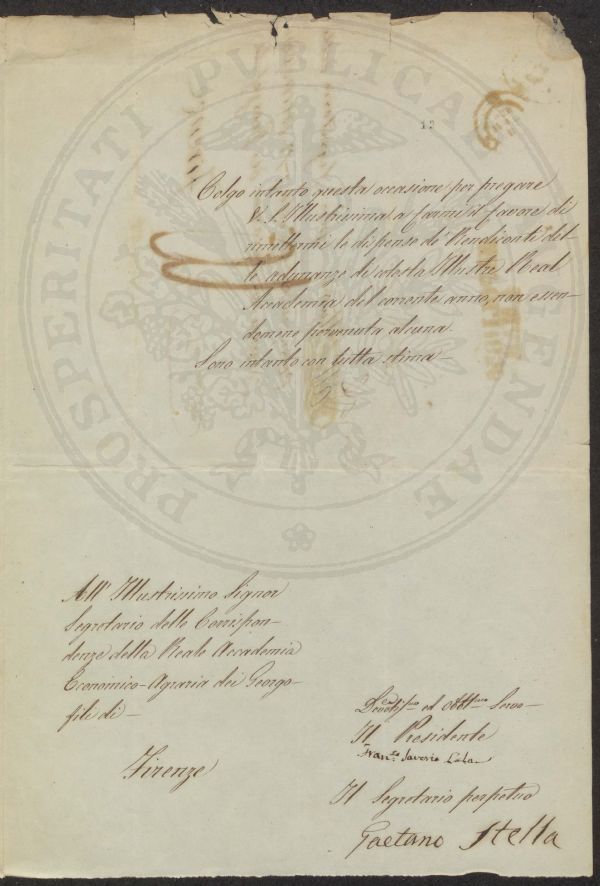 PROSPERITATI PUBLICAE AUGENDAE
12
Colgo intanto questa occasione per pregare
V. S. Illustrissima a farmi il favore di
rimettermi le dispense de' Rendiconti del-
le adunanze di codesta Illustre Real
Accademia del corrente anno, non essen-
domene pervenuta alcuna.
Sono intanto con tutta stima —
All' Illustrissimo Signor
Segretario delle Corrispon-
denze della Reale Accademia
Economico-Agraria dei Georgo-
fili di —
Firenze
ed Obblmo Servo —
Il Presidente
Franco Saverio
Il Segretario perpetuo
Gaetano Stella